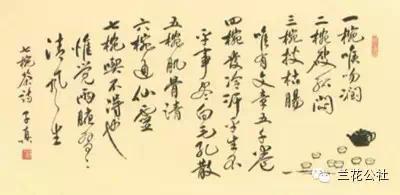 一椀喉吻潤
二椀破孤悶
三椀搜枯腸
唯有文章五千卷
四椀發輕汗平生不
平事尽向毛孔散
五椀肌骨清
六椀通仙靈
七椀喫不得也
惟觉兩腋習〻
清風生
七椀茶诗 子真
兰花公社